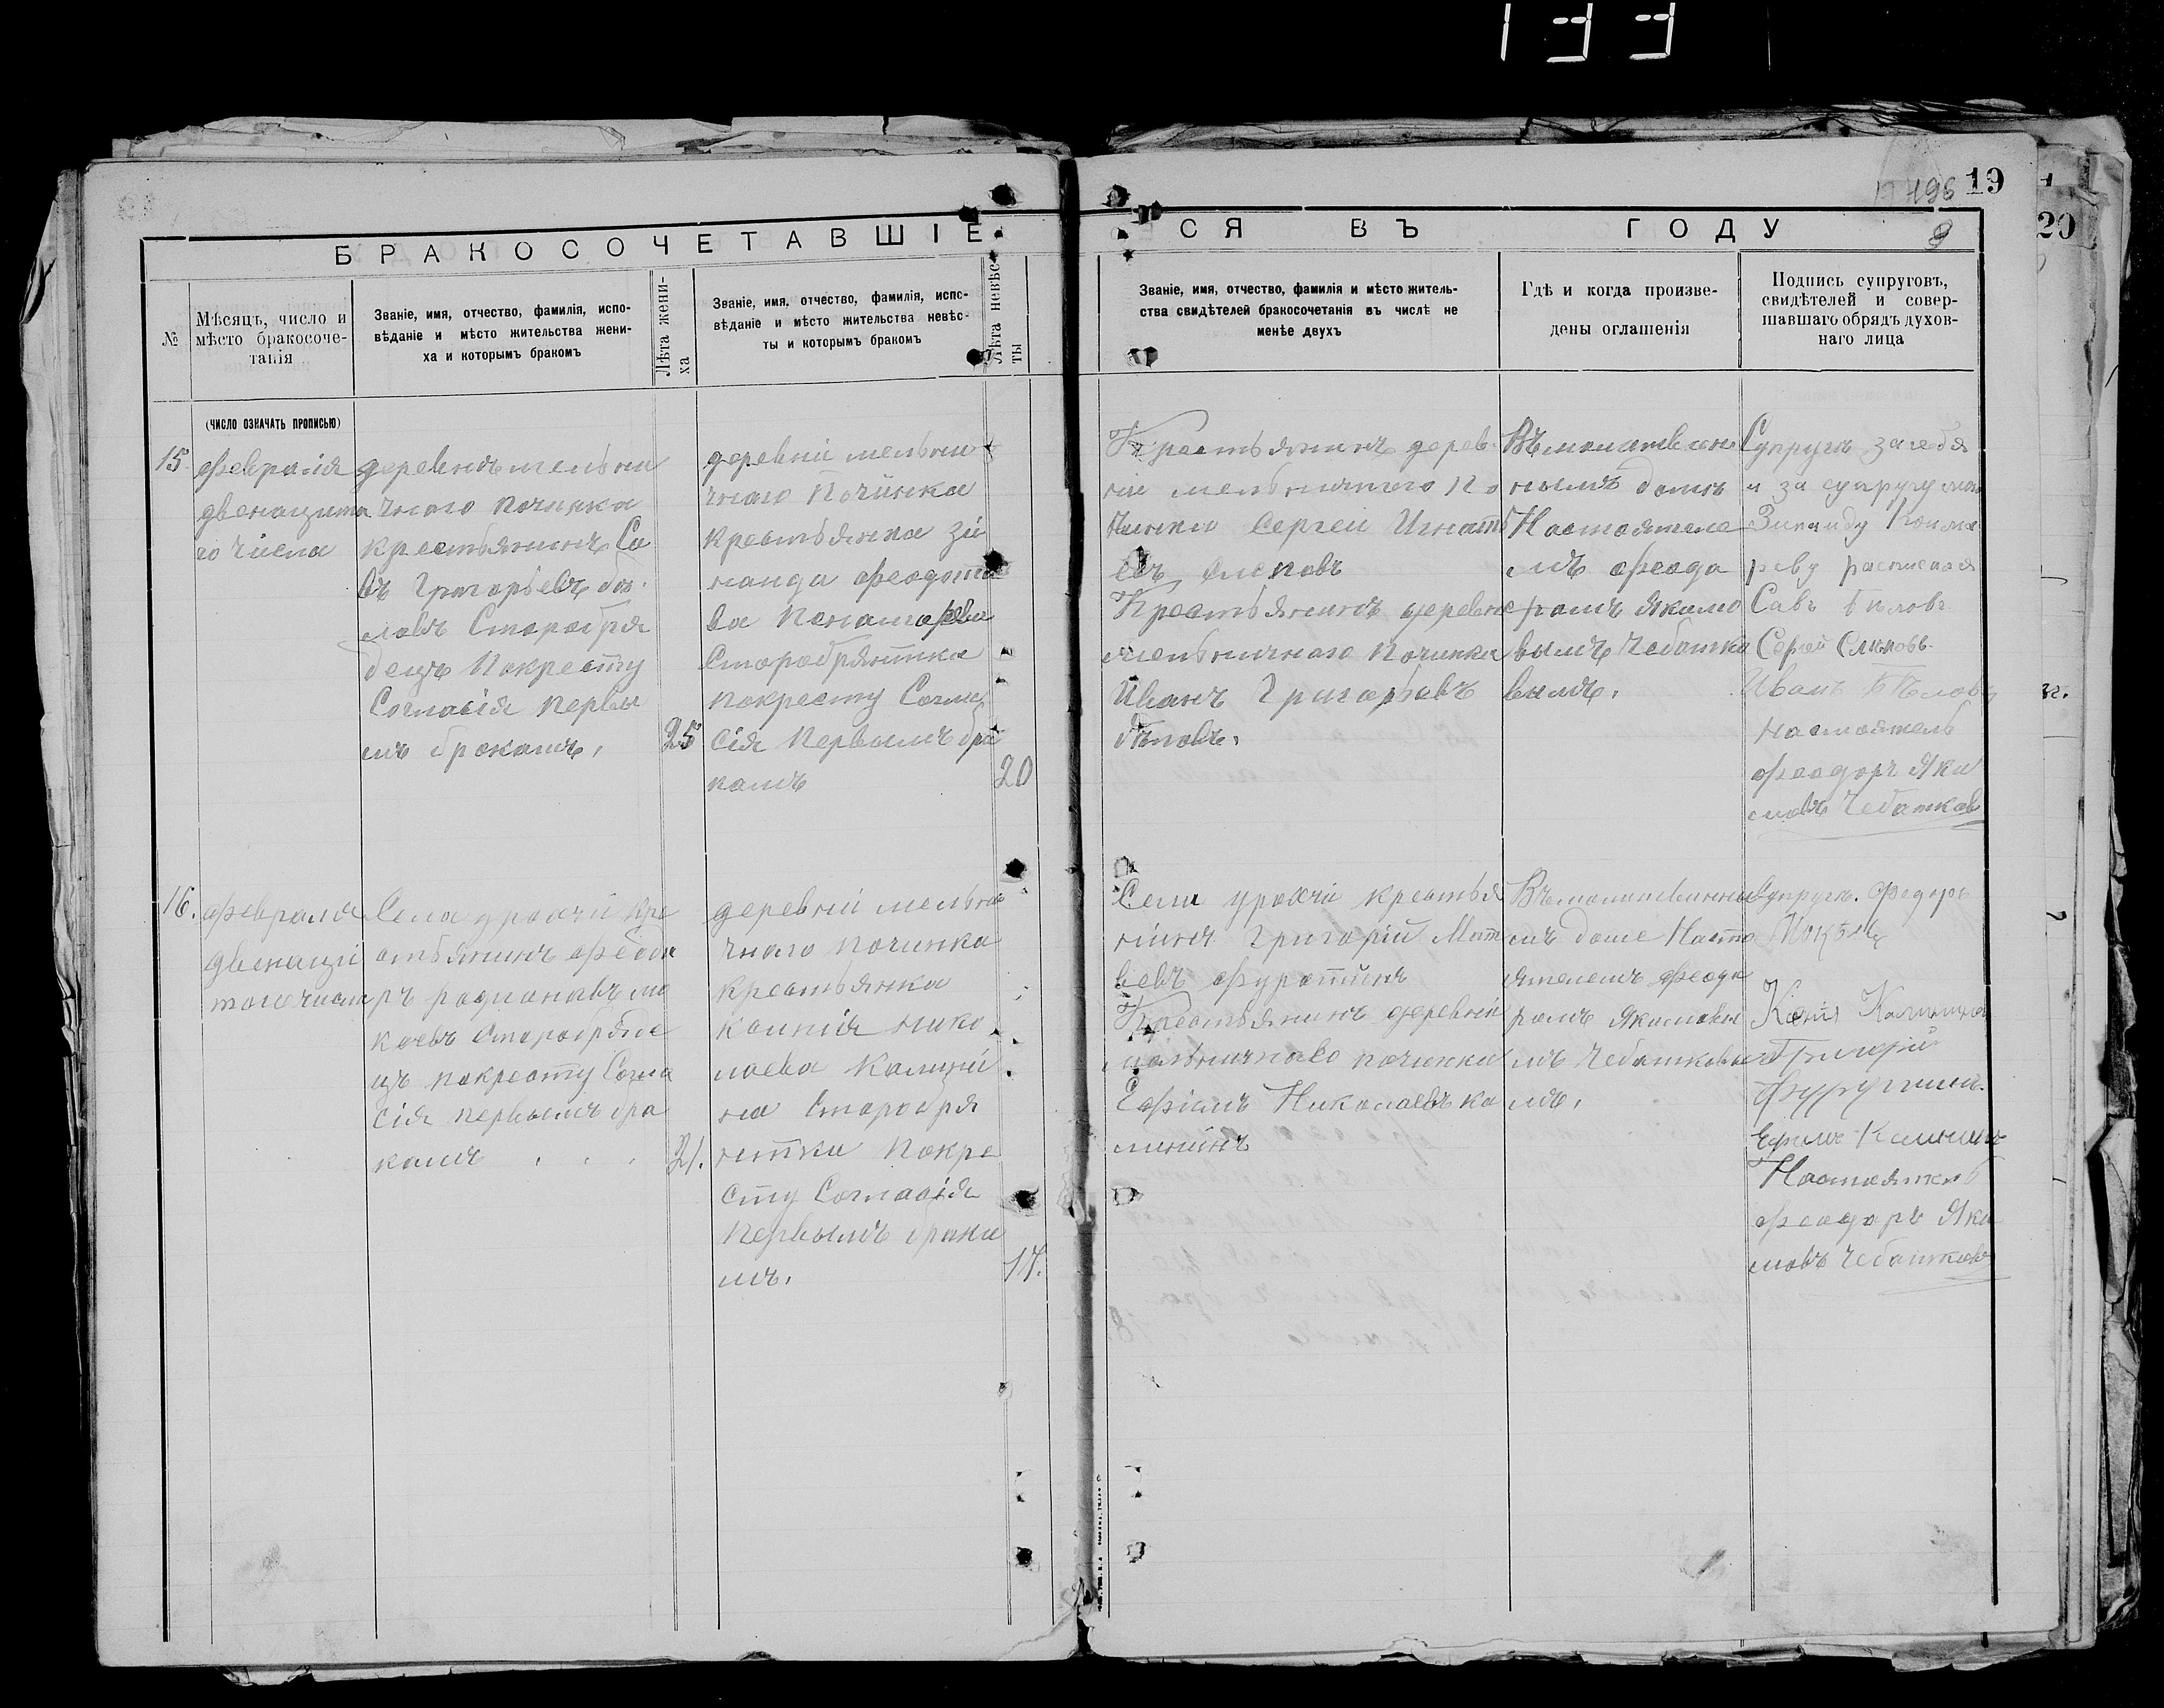 133
19
20
БРАКОСОЧЕТАВШІЕ
СЯ ВЪ ГОДУ
№
Мѣсяцъ, число и
мѣсто бракосоче-
танія
(ЧИСЛО ОЗНАЧАТЬ ПРОПИСЬЮ)
Званіе, имя, отчество, фамилія, испо-
вѣданіе и мѣсто жительства жени-
ха и которымъ бракомъ
Лѣта жени-
ха
Званіе, имя, отчество, фамилія, испо-
вѣданіе и мѣсто жительства невѣс-
ты и которымъ бракомъ
Лѣта невѣс-
ты
Званіе, имя, отчество, фамилія и мѣсто житель-
ства свидѣтелей бракосочетанія въ числѣ не
менѣе двухъ
Гдѣ и когда произве-
дены оглашенія
Подпись супруговъ,
свидѣтелей и совер-
шавшаго обрядъ духов-
наго лица
15.
февралія
двенацата
го числа
деревнѣ мельни
чнаго починка
крестьянинъ Са
въ Григорьевъ
Старобря
децъ Покресту
Согласія первы
мъ бракамъ,
25
деревни мельни
чнаго Починка
крестьянка Зи
наида феодото
ва
Старобрятка
покресту Согла
сія Первымъ бра
камъ
20
Крестьянинъ дерев
ни мельничнаго По
чинка Сергей Игнать
евъ Слеповъ
Крестьянинъ деревне
мельничнаго Починка
Иванъ Григорьевъ
бѣловъ.
Въ молитвен
нымъ домѣ
Настоятеле
мъ феодо
ромъ Якимо
вымъ Чебатко
вымъ.
Супругъ за себя
и за супругу мою
Зинаиду
реву расписался
Савъ Бѣловъ
Сергей Слеповъ
Иванъ Бѣловъ
Настоятель
феодоръ Яки
мовъ Чебатков
16.
февралія
двенаци
таго числа
Села уракчи кре
стьянинъ феодо
ръ радионавъ мо
Старобряде
цъ покресту Согла
сія первымъ бра
камъ
21.
деревни мельни
чнаго починка
крестьянка
нико
лаева Калини
на Старобря
тка Покре
сту Согласія
Первымъ брака
мъ.
17.
Села уракчи крестья
нинъ Григорій Мат
веевъ
Крестьянинъ деревни
мельничнаво починка
Ефимъ Николаевъ ка
лининъ
Въ молитвенны
мъ доме Насто
ятелемъ феодо
ромъ Якимовы
мъ Чебатковы
мъ.
Супругъ. Федоръ
Калинина
Григорій
Ефимъ Калининъ
Настоятель
феодоръ Яки
мовъ Чебатковъ